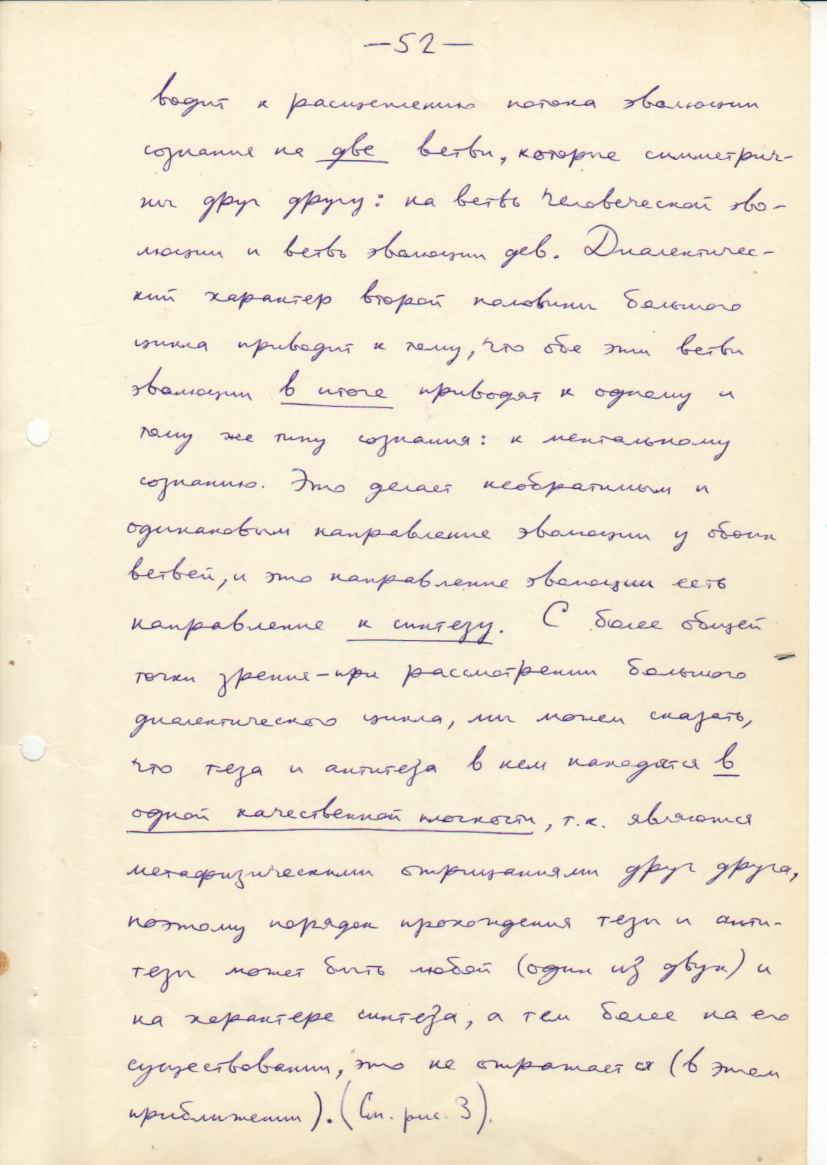 —52—
водит к расщеплению потока эволюции
сознания на две ветви, которые симметрич-
ны друг другу: на ветвь человеческой эво-
люции и ветвь эволюции дев. Диалектичес-
кий характер второй половины большого
цикла приводит к тому, что обе эти ветви
эволюции в итоге приводят к одному и
тому же типу сознания: к ментальному
сознанию. Это делает необратимым и
одинаковым направление эволюции у обоих
ветвей, и это направление эволюции есть
направление к синтезу. С более общей
точки зрения – при рассмотрении большого
диалектического цикла, мы можем сказать,
что теза и антитеза в нем находятся в
одной качественной плоскости, т.к. являются
метафизическими отрицаниями друг друга,
поэтому порядок прохождения тезы и анти-
тезы может быть любой (один из двух) и
на характере синтеза, а тем более на его
существовании, это не отражается (в этом
приближении). (См. рис. 3).